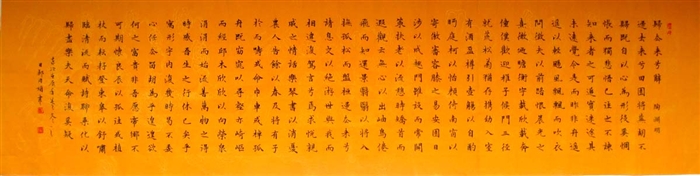 歸去来兮辭 陶淵明
歸去来兮田園將蕪胡不
歸既自以心為形役奚惆
悵而獨悲悟已往之不諫
知来者之可追實迷途其
未遠覺今是而昨非舟遥
遥以輕颺風飄飄而吹衣
問征夫以前路恨晨光之
熹微乃瞻衡宇載欣載奔
僮僕歡迎稚子候門三徑
就荒松菊猶存攜幼入室
有酒盈樽引壺觴以自酌
眄庭柯以怡顔倚南窗以
寄傲審容膝之易安園日
涉以成趣門雖設而常關
策扶老以流憩時矯首而
遐觀雲無心以出岫鳥倦
飛而知還景翳翳以將入
撫孤松而盤桓歸去来兮
請息交以絶遊世與我而
相違復駕言兮焉求悦親
戚之情話樂琴書以消憂
農人告余以春及將有事
於西疇或命巾車或棹孤
舟既窈窕以尋壑亦崎嶇
而經丘木欣欣以向榮泉
涓涓而始流善萬物之得
時感吾生之行休已矣乎
寓形宇內復幾時曷不委
心任去留胡為乎遑遑欲
何之富貴非吾願帝鄉不
可期懷良辰以孤往或植
杖而耘耔登東皋以舒嘯
臨清流而賦詩聊乘化以
歸盡樂夫天命復奚疑